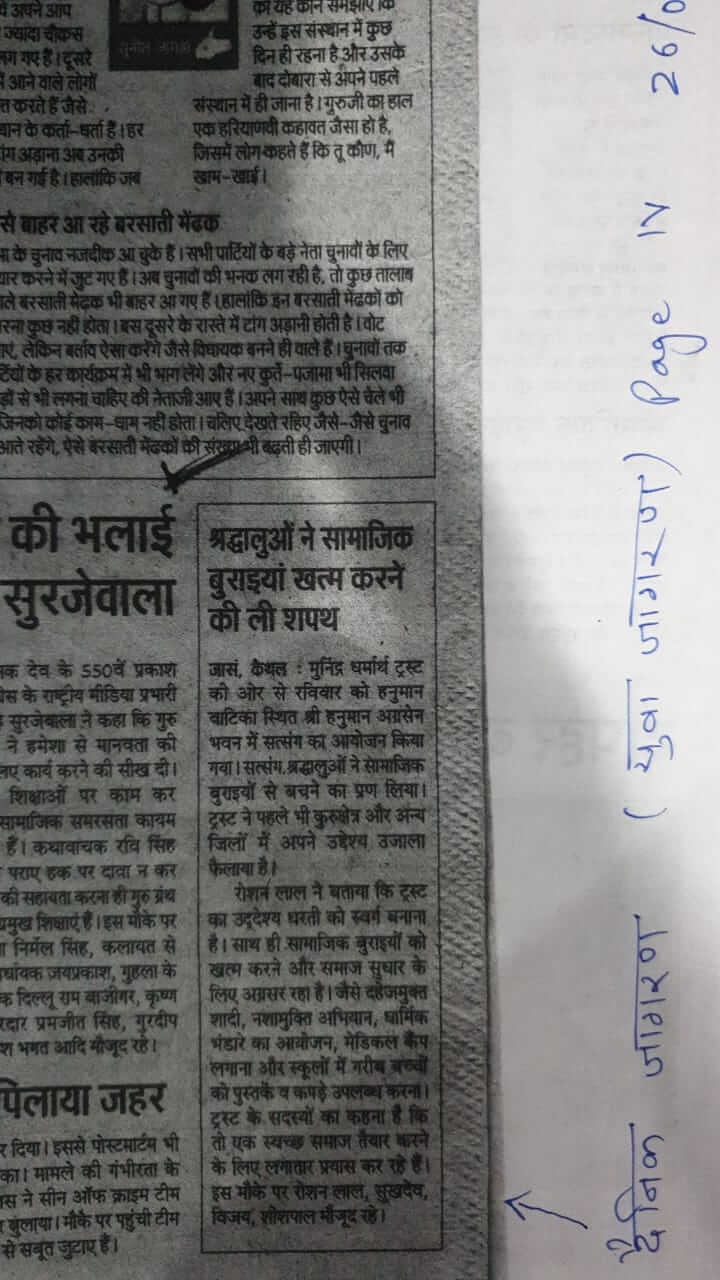 ने अपने आप
ज्यादा चौकस
लग गए हैं। दूसरे
में आने वाले लोगों
त करते हैं जैसे
थान के कर्ता-धर्ता हैं। हर
टांग अड़ाना अब उनकी
बन गई है। हालांकि जब
सुनील जांगड़ा
को यह कौन समझाए कि
उन्हें इस संस्थान में कुछ
दिन ही रहना है और उसके
बाद दोबारा से अपने पहले
संस्थान में ही जाना है। गुरुजी का हाल
एक हरियाणवी कहावत जैसा हो है,
जिसमें लोग कहते हैं कि तू कौण, मैं
खाम-खाई।
से बाहर आ रहे बरसाती मेंढक
के चुनाव नजदीक आ चुके हैं। सभी पार्टियों के बड़े नेता चुनावों के लिए
यार करने में जुट गए हैं। अब चुनावों की भनक लग रही है, तो कुछ तालाब
ले बरसाती मेंढक भी बाहर आ गए हैं। हालांकि इन बरसाती मेंढकों को
रना कुछ नहीं होता। बस दूसरे के रास्ते में टांग अड़ानी होती है। वोट
एं, लेकिन बर्ताव ऐसा करेंगे जैसे विधायक बनने ही वाले हैं। चुनावों तक
र्टियों के हर कार्यक्रम में भी भाग लेंगे और नए कुर्ते-पजामा भी सिलवा
ड़ों से भी लगना चाहिए की नेताजी आए हैं। अपने साथ कुछ ऐसे चेले भी
जिनको कोई काम-धाम नहीं होता। चलिए देखते रहिए जैसे-जैसे चुनाव
आते रहेंगे, ऐसे बरसाती मेंढकों की संख्या भी बढ़ती ही जाएगी।
की भलाई
सुरजेवाला
नक देव के 550वें प्रकाश
ग्रेस के राष्ट्रीय मीडिया प्रभारी
सुरजेवाला ने कहा कि गुरु
ने हमेशा से मानवता की
लिए कार्य करने की सीख दी।
शिक्षाओं पर काम कर
सामाजिक समरसता कायम
हैं। कथावाचक रवि सिंह
पराए हक पर दावा न कर
की सहायता करना ही गुरु ग्रंथ
प्रमुख शिक्षाएं हैं। इस मौके पर
निर्मल सिंह, कलायत से
विधायक जयप्रकाश, गुहला के
क दिल्लू राम बाजीगर, कृष्ण
रदार प्रमजीत सिंह, गुरदीप
श भगत आदि मौजूद रहे।
पिलाया जहर
र दिया। इससे पोस्टमार्टम भी
का। मामले की गंभीरता के
स ने सीन ऑफ क्राइम टीम
बुलाया। मौके पर पहुंची टीम
से सबूत जुटाए हैं।
श्रद्धालुओं ने सामाजिक
बुराइयां खत्म करने
की ली शपथ
जासं, कैथल : मुनिंद्र धर्मार्थ ट्रस्ट
की ओर से रविवार को हनुमान
वाटिका स्थित श्री हनुमान अग्रसेन
भवन में सत्संग का आयोजन किया
गया। सत्संग श्रद्धालुओं ने सामाजिक
बुराइयों से बचने का प्रण लिया।
ट्रस्ट ने पहले भी कुरुक्षेत्र और अन्य
जिलों में अपने उद्देश्य उजाला
फैलाया है।
रोशन लाल ने बताया कि ट्रस्ट
का उद्देश्य धरती को स्वर्ग बनाना
है। साथ ही सामाजिक बुराइयों को
खत्म करने और समाज सुधार के
लिए अग्रसर रहा है। जैसे दहेजमुक्त
शादी, नशामुक्ति अभियान, धार्मिक
भंडारे का आयोजन, मेडिकल कैंप
लगाना और स्कूलों में गरीब बच्चों
को पुस्तकें व कपड़े उपलब्ध करना।
ट्रस्ट के सदस्यों का कहना है कि
तो एक स्वच्छ समाज तैयार करने
के लिए लगातार प्रयास कर रहे हैं।
इस मौके पर रोशन लाल, सुखदेव,
विजय, शीशपाल मौजूद रहे।
दैनिक जागरण (युवा जागरण) Page IV 26/0